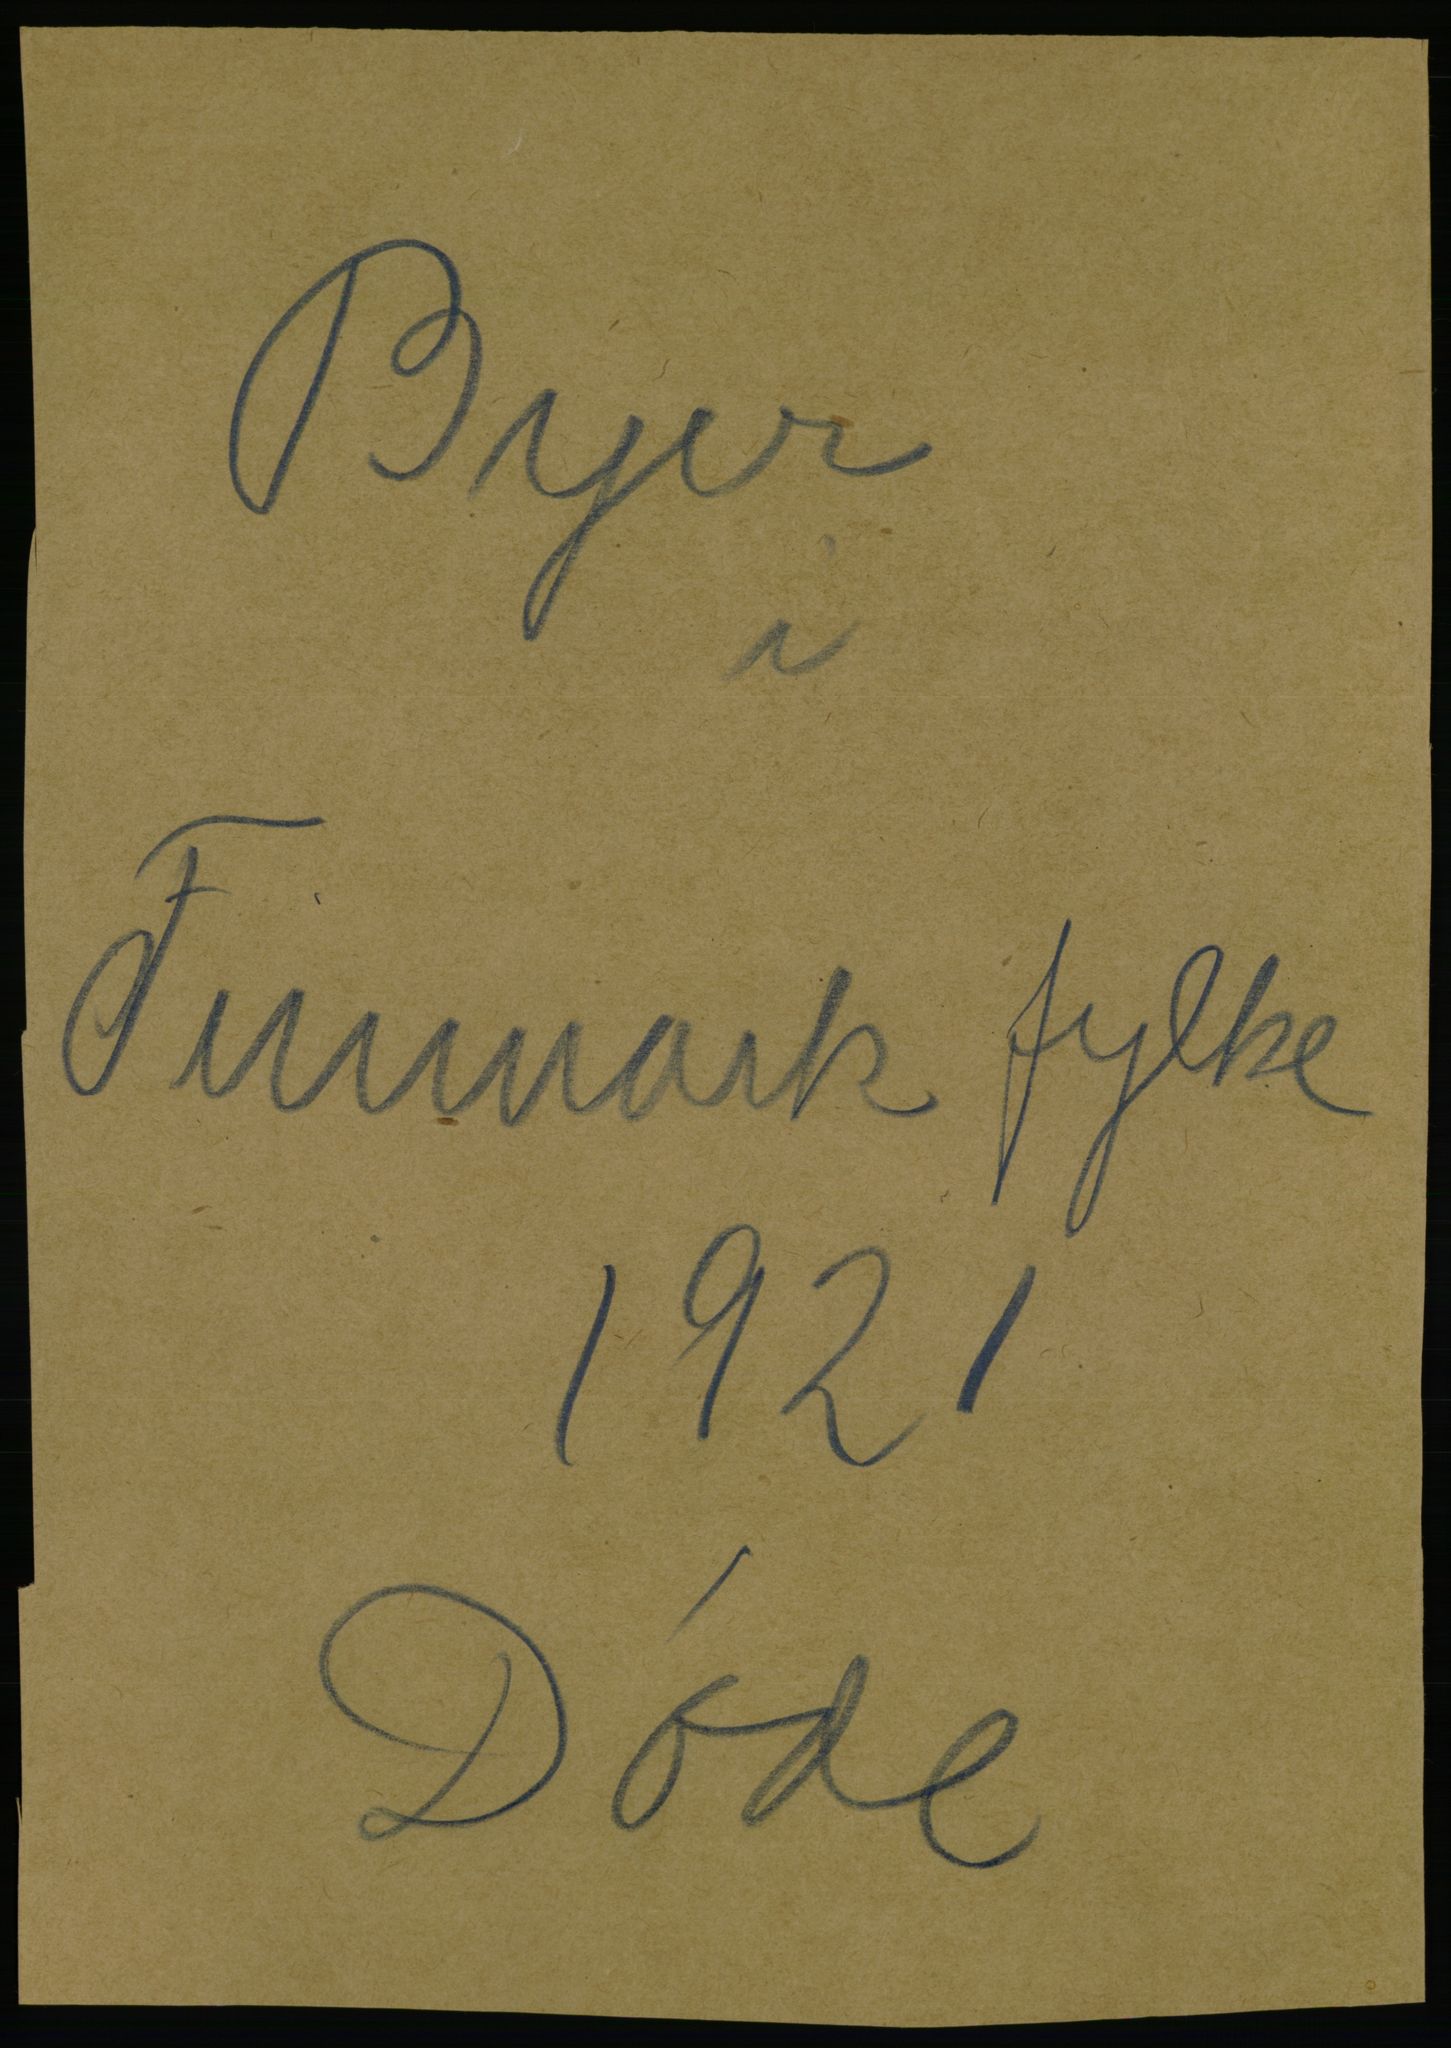 Byer
i
Finmark fylke
1921
Døde